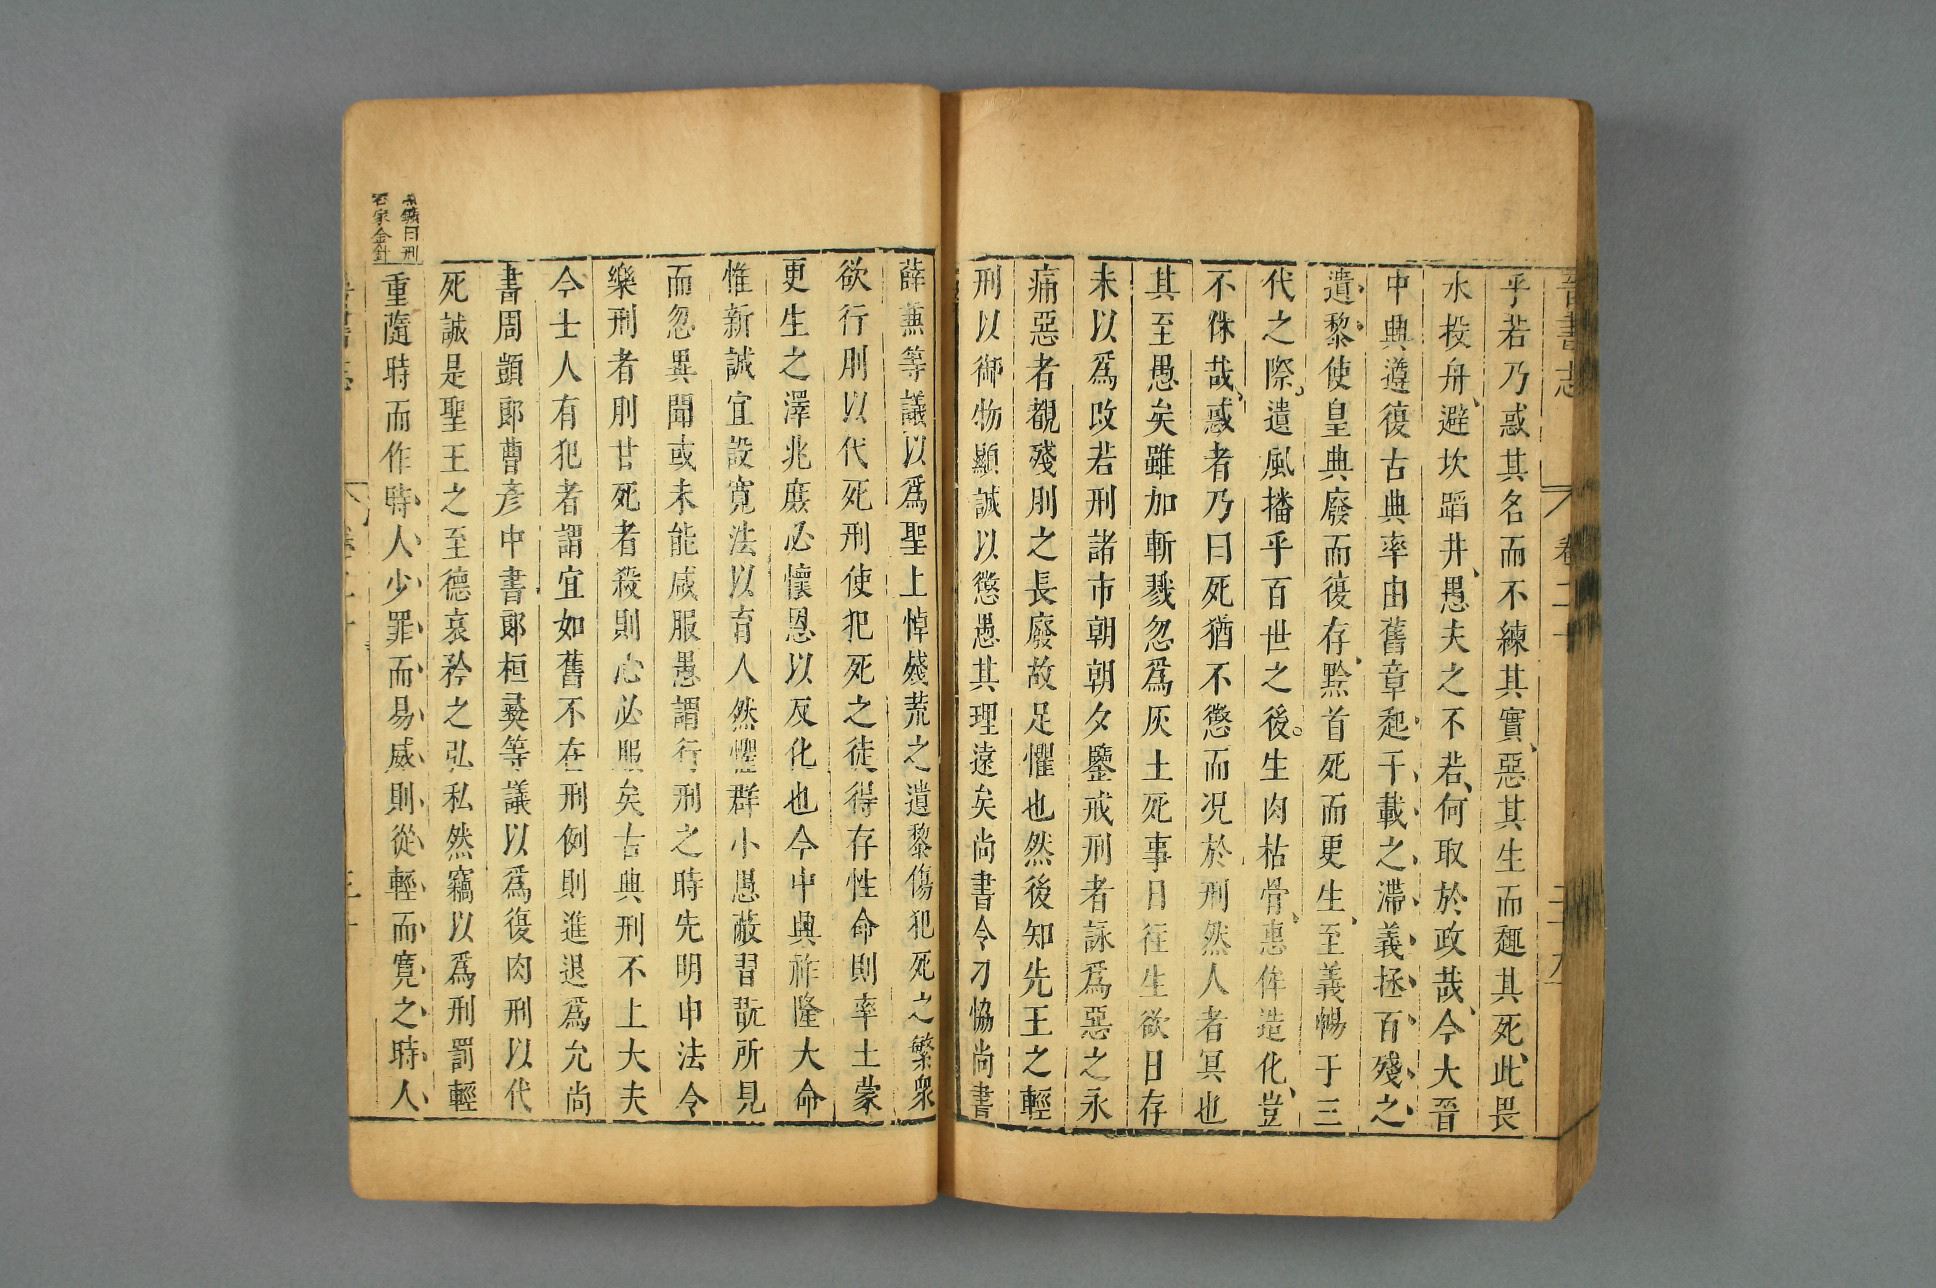 晉書志 卷三十 三十九
乎若乃惑其名而不練其實惡其生而趣其死此畏
水投舟避坎蹈井愚夫之不若何取於政哉今大晉
中興遵復古典率由舊章起千載之滯義拯百殘之
遺黎使皇典廢而復存黔首死而更生至義暢于三
代之際遺風播乎百世之後生肉枯骨惠侔造化豈
不休哉惑者乃曰死猶不懲而況於刑然人者冥也
其至愚矣雖加斬戮忽爲灰土死事日往生欲日存
未以爲改若刑諸市朝朝夕鑒戒刑者詠爲惡之永
痛惡者覩殘刖之長廢故足懼也然後知先王之輕
刑以御物顯誡以懲愚其理遠矣尚書令刁協尚書
薛兼等議以爲聖上悼殘荒之遺黎傷犯死之繁衆
欲行刖以代死刑使犯死之徒得存性命則率土蒙
更生之澤兆庶必懷恩以反化也今中興祚隆大命
惟新誠宜設寬法以育人然懼群小愚蔽習翫所見
而忽異聞或未能咸服愚謂行刑之時先明申法令
樂刑者刖甘死者殺則心必服矣古典刑不上大夫
今士人有犯者謂宜如舊不在刑例則進退爲允尚
書周顗郎曹彥中書郎桓彝等議以爲復肉刑以代
死誠是聖王之至德哀矜之弘私然竊以爲刑罰輕
重隨時而作時人少罪而易威則從輕而寬之時人
曰刑
名家金針